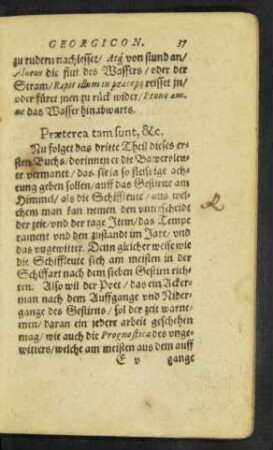 GEORGICON. 37
zu rudern nachlesset/ Atq; von stund an/
Alueus die flut des Wassers/ oder der
Stram/ Rapit illum in præceps reisset in/
oder füret jnen zu rück wider/ Prono am-
ne das Wasser hinabwarts.
Præterea tam sunt, &c.
Nu folget das dritte Theil dieses er-
sten Buchs/ dorinnen er die Bawersleu-
te vermanet/ das sie ja so fleissige ach-
tung geben sollen/ auff das Gestirne am
Himmel/ als die Schiffleute/ aus wel-
chem man kan nemen den vnterscheidt
der zeit/ vnd der tage Item/ das Tempe
rament vnd den zustandt im Jare/ vnd
das vngewitter. Denn gleicher weise wie
die Schiffleute sich am meisten in der
Schiffart nach dem sieben Gestirn rich-
ten. Also wil der Poet/ das ein Acker-
man nach dem Auffgange vnd Nider-
gange des Gestirns/ sol der zeit warne-
men/ daran ein jedere arbeit geschehen
mag/ wie auch die Prognostica des vnge-
witters/ welche am meisten aus dem auff
E v gange